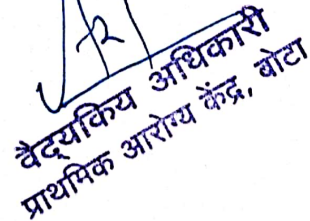 वैद्यकिय अधिकारी
प्राथमिक आरोग्य केंद्र, बोटा